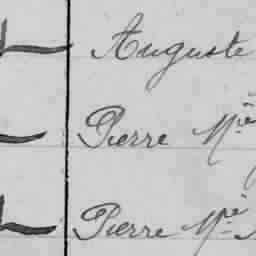 Auguste
Pierre Mie
Pierre Mie